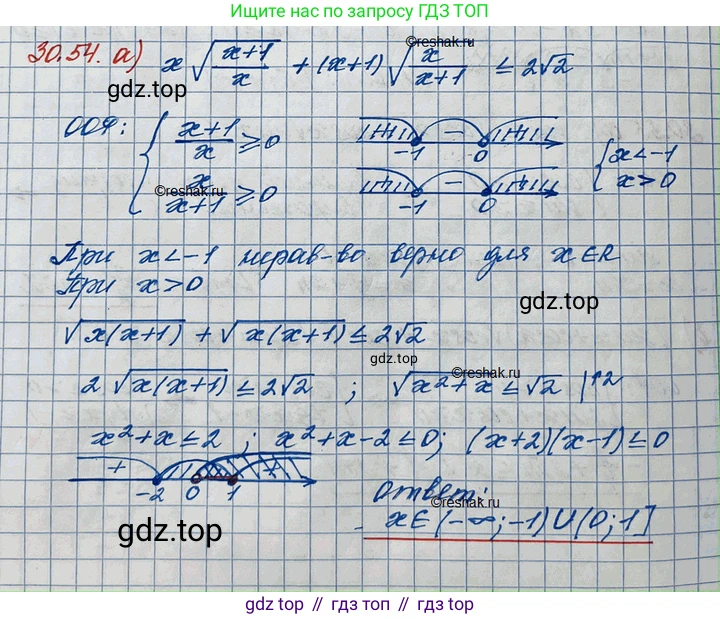 Ищите нас по запросу ГДЗ ТОП
30.54. а) x √((x+1)/x) + (x+1) √(x/(x+1)) ≤ 2√2
©reshak.ru
gdz.top
ООФ: { (x+1)/x ≥ 0 -1 − 0 { x<-1
x/(x+1) ≥ 0 -1 − 0 x>0
©reshak.ru
При x<-1 нерав-во верно для x∈R
При x>0
gdz.top
√x(x+1) + √x(x+1) ≤ 2√2
©reshak.ru
2 √x(x+1) ≤ 2√2 ; √x²+x ≤ √2 |↑2
x²+x ≤ 2 ; x²+x-2 ≤ 0; (x+2)(x-1) ≤ 0
+ +
-2 0 1
Ответ:
©reshak.ru
x∈(-∞;-1)∪(0;1]
gdz.top
gdz.top // гдз топ // gdz top